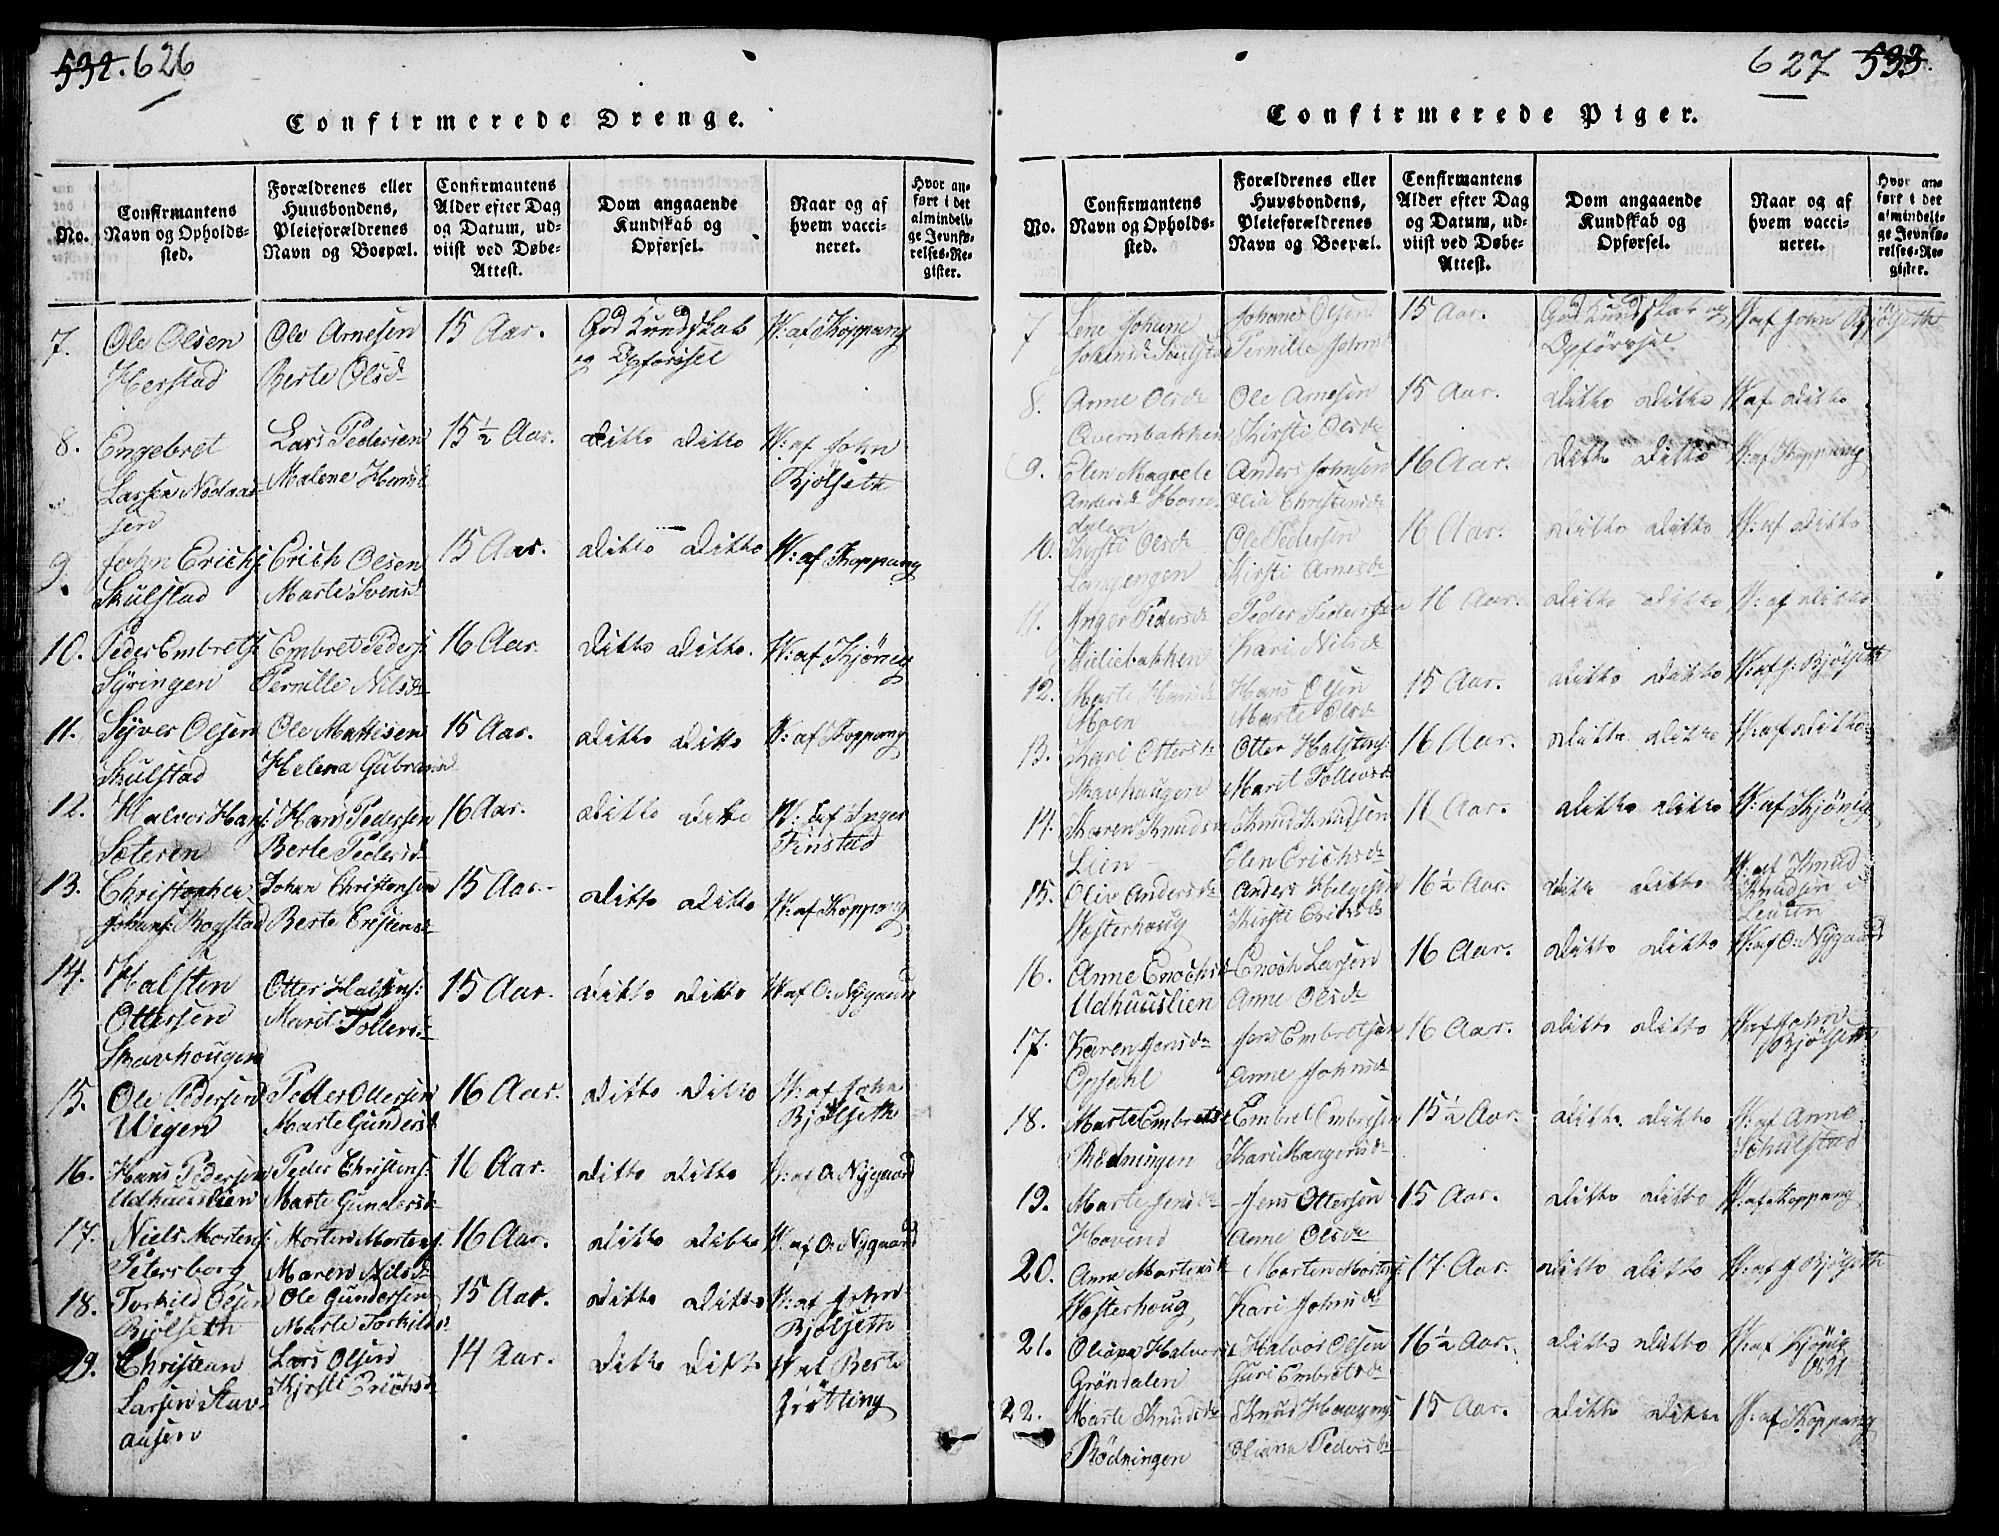 532. 626
Confirmerede Drenge.
No.
Confirmantens
Navn og Opholds-
sted.
Forældrenes eller
Huusbondens,
Pleieforældrenes
Navn og Boepæl.
Confirmantens
Alder efter Dag
og Datum, ud-
viist ved Døbe-
Attest.
Dom angaaende
Kundskab og
Opførsel.
Naar og af
hvem vacci-
neret.
Hvor an-
ført i det
almindeli-
ge Jevnfø-
relses-Re-
gister.
7. Ole Olsen Ole Arnesen 15 Aar. God Kundskab W: af Koppang
Herstad Berte Olsd og Opførsel
8. Engebret Lars Pedersen 15 ½ Aar. ditto ditto W: af John
Larsen Malene Hansd Bjølseth
9. John Erichs: Erich Olsen 15 Aar. ditto ditto W: af Koppang
Skulstad Marte Svensd
10. Peder Embrets: Embret Peders: 16 Aar ditto ditto. W: af Kjønig
Syringen Pernille Nilsd
11. Syver Olsen Ole Mattisen 15 Aar. ditto ditto W: af Koppang
Skulstad Helena Gubransd
12. Halvor Hans: Hans Pedersen 16 Aar. ditto ditto W: af Inger
Sæteren Berte Pedersd Finstad
13. Christopher Johan Christensen 15 Aar. ditto ditto W: af Koppang
Johans: Bogstad Berte
14. Halsten Otter Halstens: 15 Aar. ditto ditto W af O: Nygaard
Ottersen Marit Tollevsd
Skavhougen
15. Ole Pedersen Petter Ottersen 16 Aar. ditto ditto W: af John
Wigen Marte Gundersd Bjølseth
16. Hans Pedersen Peder Christens: 16 Aar. ditto ditto W: af O: Nygaard
Udhuuslien Marte Gundersd
17. Niels Mortens: Morten Mortens: 16 Aar. ditto ditto W: af O: Nygaard
Petersborg Maren Nilsd
18. Torkild Olsen Ole Gundersen 15 Aar. ditto ditto W: af John
Bjølseth Marte Torkildsd Bjølseth
19. Christian Lars Olsen 14 Aar. ditto ditto W af Berte
Larsen Stav- Kjrsti Erichsd Grøtting
ausen
627 533.
Confirmerede Piger.
No.
Confirmantens
Navn og Opholds-
sted.
Forældrenes eller
Huusbondens,
Pleieforældrenes
Navn og Boepæl.
Confirmantens
Alder efter Dag
og Datum, ud-
viist ved Døbe-
Attest.
Dom angaaende
Kundskab og
Opførsel.
Naar og af
hvem vacci-
neret.
Hvor an-
ført i det
almindeli-
ge Jevnfø-
relses-Re-
gister.
7 Lene Johanne Johanes Olsen 15 Aar. God Kundskab og W af John Bjølseth
Johansd Skulstad Pernille Johnsd Opførsel.
8. Anne Olsd Ole Arnesen 15 Aar. ditto ditto W af ditto
Qvernbakken Kirsti Olsd
9. Elen Magrete Anders Johnsen 16 Aar. ditto ditto W: af Koppang
Andersd Horre- Olia Christensd
dalen
10. Kirsti Olsd Ole Pedersen 16 Aar. ditto ditto W: af ditto
Langengen Kirsti Arnesd
11. Inger Pedersd Peder Pedersen 16 Aar. ditto ditto W: af ditto
Liliebakken Kari Nilsd
12. Marte Hansd Hans Olsen 15 Aar. ditto ditto W: af J: Bjølseth
Moen Marte Olsd
13. Kari Ottersd Otter Halstens: 16 Aar. ditto ditto W: af ditto
Skavhaugen Marit Tollevsd
14. Karen Knudsd Knud Knudsen 16 Aar. ditto ditto W: af Kjønig
Lien Elen Erichsd
15. Oliv Andersd Anders Helgesen 16 ½ Aar. ditto ditto W: af Knud
Westerhoug Kirsti Erichsd Knudsen i
Løuten
16. Anne Enochsd Enoch Larsen 16 Aar. ditto ditto W: af O: Nygaard
Udhuuslien Anne Olsd
17. Karen Jensd Jens Embretsen 16 Aar. ditto ditto W af John
Opsahl Anne Johnsd Bjølseth
18. Marte Embretsd Embret Embretsen 15 ½ Aar. ditto ditto W: af Anne
Rødningen Kari Haagensd Schulstad
19. Marte Jensd Jens Ottersen 15 Aar. ditto ditto W: af Koppang
Hovend Anne Olsd
20. Anne Mortensd Morten Mortens: 17 Aar. ditto ditto W: af J Bjølseth
Westerhoug Kari Johnsd
21. Oliana Halvorsd Halvor Olsen 16 ½ Aar. ditto ditto W: af Kjønig
Grøndalen Guri Embretsd
22. Marte Knudsd Knud Haagens: 15 Aar. ditto ditto W: af Koppang
Rødningen Oliana Pedersd